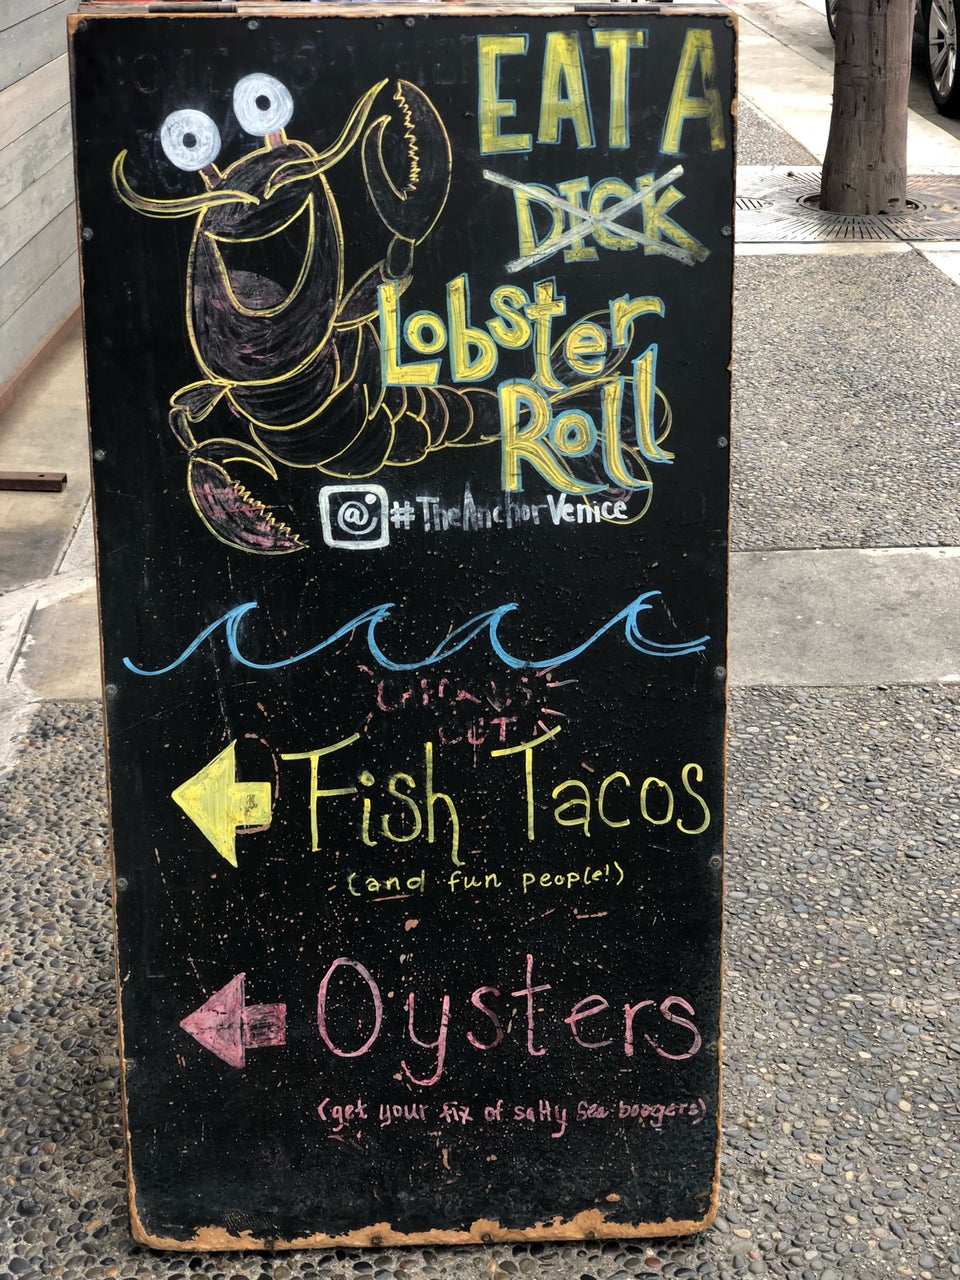 EAT A
DICK
Lobster
Roll
@ #TheAnchorVenice
Fish Tacos
(and fun people!)
Oysters
(get your fix of salty sea boogers)